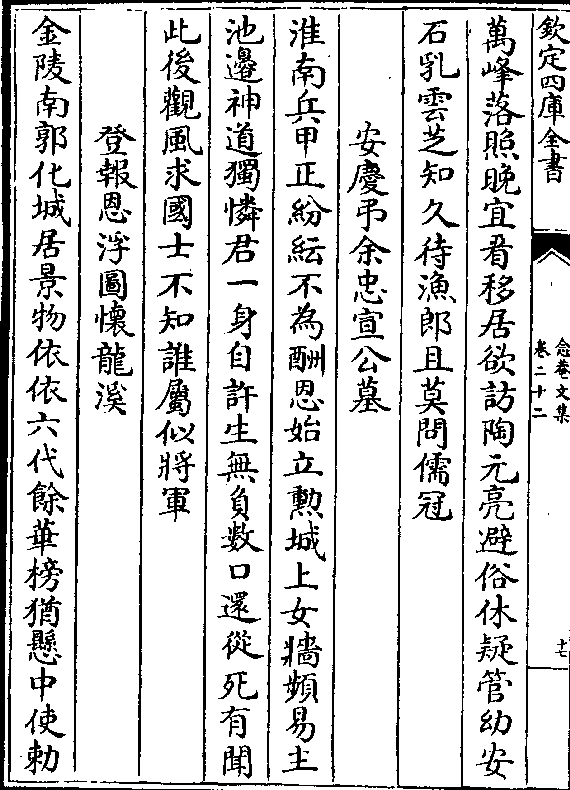 欽定四庫全書
念菴文集
卷二十二
十七
萬峰落照晚宜看移居欲訪陶元亮避俗休疑管幼安
石乳雲芝知久待漁郎且莫問儒冠
安慶弔余忠宣公墓
淮南兵甲正紛紜不為酬恩始立勲城上女牆頻易主
池邊神道獨憐君一身自許生無負數口還從死有聞
此後觀風求國士不知誰屬似將軍
登報恩浮圖懷龍溪
金陵南郭化城居景物依依六代餘華榜猶懸中使勅